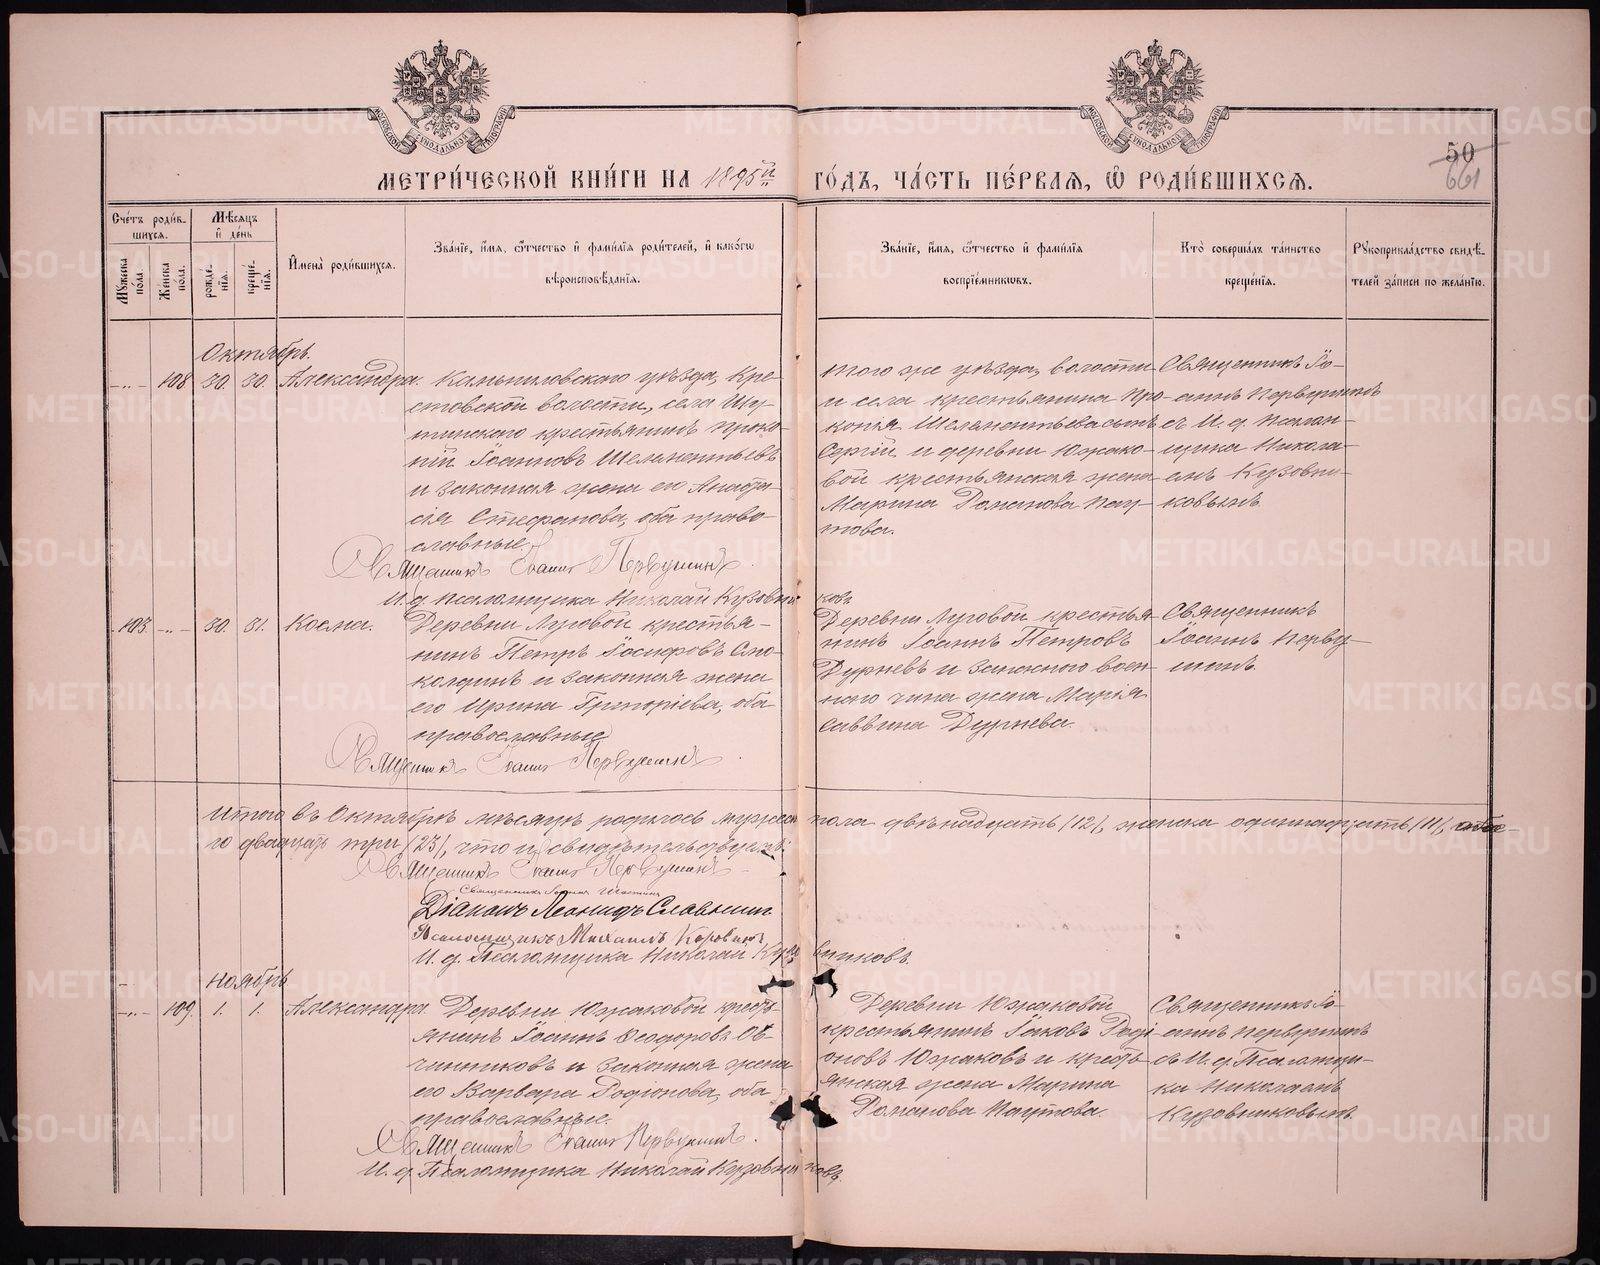 МЕТРИ́ЧЕСКОЙ КНИ́ГИ НА 1895й ГО́ДЪ, ЧА́СТЬ ПЕ́РВАЯ, Ѡ РОДИ́ВШИХСЯ.
50
661
Сче́тъ роди́в-
шихся.
Мꙋжеска по́ла.
Же́нска по́ла.
Мѣ́сяцъ
и де́нь
рожде́-
нія.
креще́-
нія.
Имена̀ роди́вшихся.
Зва́нїе, и́мя, о́тчество и фами́лїя роди́телей, и како́гѡ
вѣроисповѣ́данїя.
Зва́нїе, и́мя, о́тчество и фами́лїя
воспрїе́мникѡвъ.
Кто̀ соверша́лъ та́инство
креще́нїя.
Рꙋкоприкла́дство свидѣ́-
телей за́писи по жела́нїю.
Октябрь.
108 30. 30. Александра. Камышловскаго уѣзда, Кре-
стовской волости, села Шу-
тинскаго крестьянинъ Проко-
пій Іоанновъ Шелементьевъ
и законная жена его Анаста-
сія Стефанова, оба право-
славные
Священникъ Іоаннъ Первушинъ.
И. д. псаломщика Николай Кузовниковъ
того же уѣзда, волости
и села крестьянина Про-
копія Шелементьева сынъ
Сергій и деревни Южако-
вой крестьянская жена
Марина Романова Пау-
това.
Священникъ Іо-
аннъ Первушинъ
съ И. д. Псалом-
щика Никола-
емъ Кузовни-
ковымъ
103. 30. 31. Косма. Деревни Луговой крестья-
нинъ Петръ Іосифовъ Смо-
колдинъ и законная жена
его Ирина Григоріева, оба
православные
Священникъ Іоаннъ Первушинъ
Деревни Луговой крестья-
нинъ Іоаннъ Петровъ
Дурневъ и запаснаго воен-
наго чина жена Марія
Саввина Дурнева.
Священникъ
Іоаннъ Перву-
шинъ
Итого въ Октябрѣ мѣсяцѣ родилось мужеска пола двѣнадцать /12/, женска одинадцать /11/, обое-
го двадцать три /23/, что и свидѣтельствуемъ:
Священникъ Іоаннъ Первушинъ
Діаконъ Леонидъ Славнинъ
Псаломщикъ Михаилъ Коровинъ
И. д. Псаломщика Николай Кузовниковъ.
Ноябрь
109. 1. 1. Александра. Деревни Южаковой кресть-
янинъ Іоаннъ Ѳеодоровъ Ов-
чинниковъ и законная жена
его Варвара Родіонова, оба
православные.
Священникъ Іоаннъ Первушинъ.
И. д. Псаломщика Николай Кузовниковъ.
Деревни Южаковой
крестьянинъ Іаковъ Роді-
оновъ Южаковъ и кресть-
янская жена Марина
Романова Паутова.
Священникъ Іо-
аннъ Первушинъ
съ И. д. Псаломщи-
ка Николаемъ
Кузовниковымъ.
METRIKI.GASO-URAL.RU